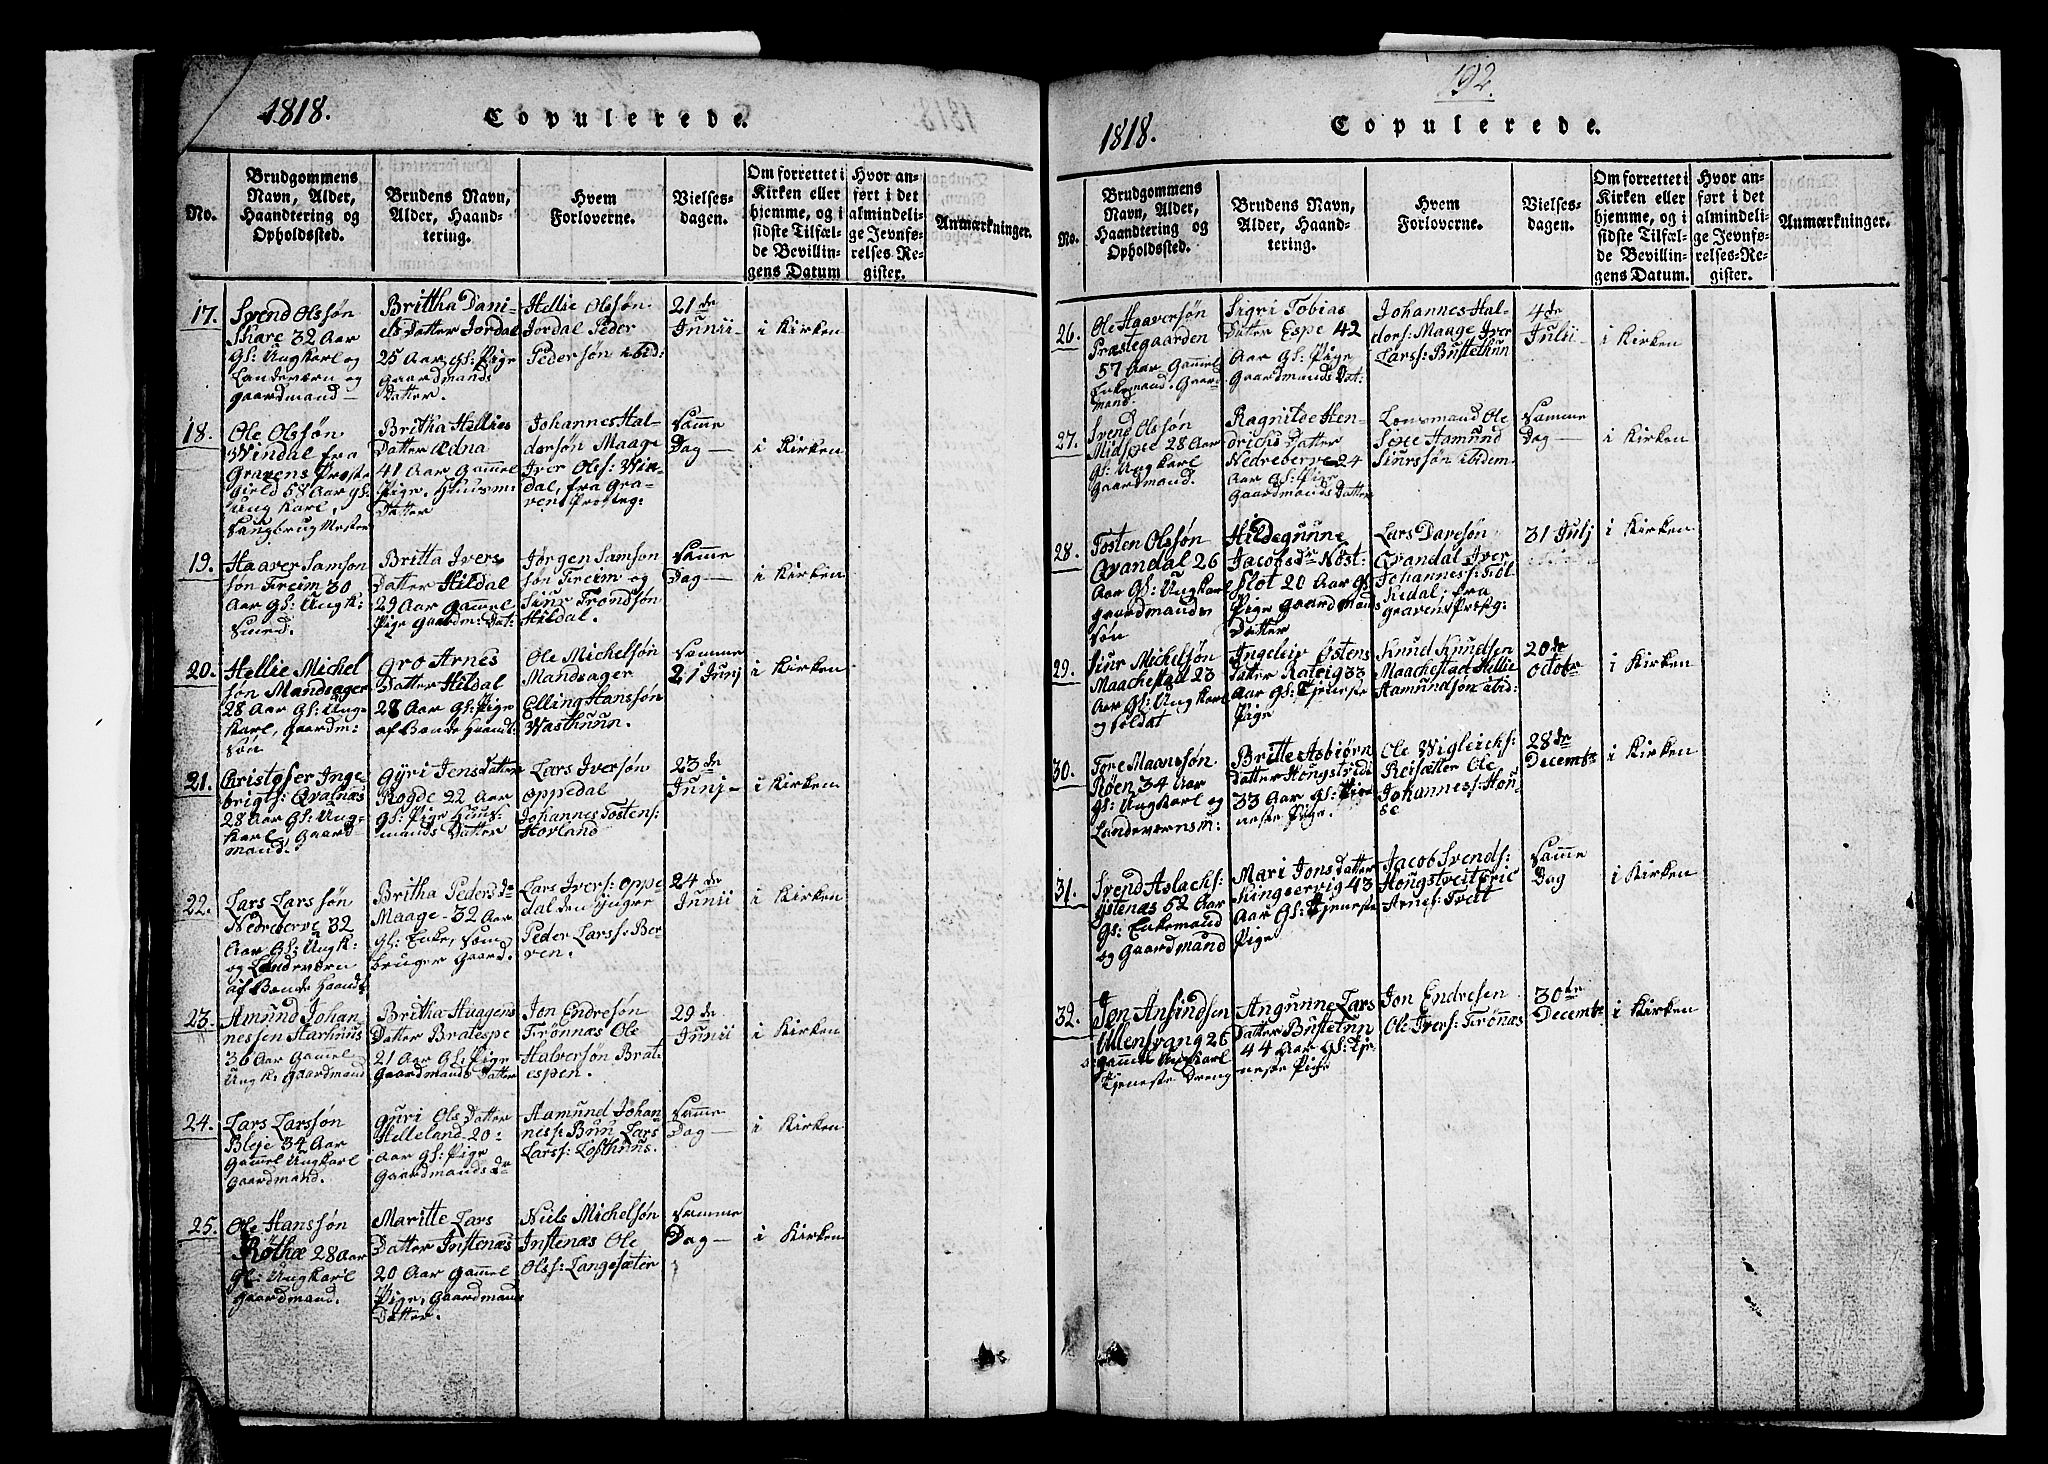 1818.
Copulerede.
No.
Brudgommens
Navn, Alder,
Haandtering og
Opholdssted.
Brudens Navn,
Alder, Haand-
tering.
Hvem
Forloverne.
Vielses-
dagen.
Om forrettet i
Kirken eller
hjemme, og i
sidste Tilfæl-
de Bevillin-
gens Datum
Hvor an-
ført i det
almindeli-
ge Jevnfø-
relses Re-
gister.
Anmærkninger.
17.
Svend Olssøn
Skare 32 Aar
Gl: Ungkarl og
Landeværn og
gaardmand
Brittha Dani-
els Datter Jordal
25 Aar Gl: Pige
Gaardmands
Datter.
Hellie Olssøn
Jordal Peder
Pedersøn ibid:
21 de
Junii
i Kirken
18.
Ole Olssøn
Windal fra
Gravens Præste
gield 58 Aar gl:
Ung Karl,
Britha Hellies
Datter Ædna
41 Aar Gammel
Pige. Huusm:
Datter
Johannes Hal-
dorsøn Maage
Iver Olss: Win-
dal, fra Gra-
vens Præsteg:
Samme
Dag
i Kirken
19.
Haaver Samson
søn Freim 30
Aar Gl: Ungk:
Smed.
Britta Ivers
Datter Hildal
29 Aar Gammel
Pige Gaardm: Dat:
Jørgen Samson
søn Freim og
Siur Trondsøn
Hildal.
Samme
Dag
i Kirken
20.
Hellie Michel
søn Mandsager
28 Aar Gl: Ung-
Karl, Gaardm-
Søn
Gro Arnes
Datter Hildal
28 Aar Gl: Pige
af Bonde Haand:
Ole Michelsøn
Mandsager
Elling Hanssøn
Wasthuun.
Samme
21 Junj
i Kirken
21.
Christofer Inge
brigts: Qvalnæs
28 Aar Gl: Ung-
Karl, Gaard
mand.
Gyri Jens Datter
Rogde 22 Aar
Gl: Pige Huus-
mands Datter
Lars Iversøn
Oppedal
Johannes Tostens:
Horland
23 de
Junj
i Kirken
22.
Lars Larssøn
Nedreberve 32
Aar Gl: Ungk:
og Landeværn
af Bonde Haand:
Britha Peders dr
Maage 32 Aar
Gl: Enke, som
bruger Gaard.
Lars Ivers: Oppe
dal den yngre
Peder Larss: Ber-
ven.
24 de
Junii
i Kirken
23.
Amund Johan
nessen Starhuus
36 Aar Gammel
Ungk: Gaardmand
Britha Huggens
Datter Bratespe
21 Aar Gl: Pige
Gaardmands Datter
Jon Endresøn
Trønnæs Ole
Halversøn Brat-
espen.
29 de
Junii
i Kirken
24.
Lars Larssøn
Bleje 34 Aar
Gammel Ungkarl
Gaardmand.
Guri Ols Datter
Helleland 20
Aar Gl: Pige
Gaardmands dr
Aamund Johan-
ness: Buu Lars
Larss: Lofthuus.
Samme
Dag
i Kirken
25.
Ole Hanssøn
Røthæ 28 Aar
Gl: Ungkarl
Gaardmand.
Maritte Lars
Datter Instenæs
20 Aar Gammel
Pige, Gaardmands
Datter.
Niels Michelsøn
Instenæs Ole
Olss: Langesæter
Samme
Dag
i Kirken
192.
1818.
Copulerede.
No.
Brudgommens
Navn, Alder,
Haandtering og
Opholdssted.
Brudens Navn,
Alder, Haand-
tering.
Hvem
Forloverne.
Vielses-
dagen.
Om forrettet i
Kirken eller
hjemme, og i
sidste Tilfæl-
de Bevillin-
gens Datum.
Hvor an-
ført i det
almindeli-
ge Jevnfø-
relses-Re-
gister.
Anmærkninger.
26.
Ole Haaversøn
Præstegaarden
57 Aar Gammel
Enkemand. Gaard
mand.
Sigri Tobias
Datter Espe 42
Aar Gl: Pige
Gaardmands Dat:
Johannes Hal-
dors: Maage Iver
Larss: Bustethun
4 de
Julii
i Kirken
27.
Svend Olssøn
Midspee 28 Aar
Gl: Ungkarl
Gaardmand.
Ragnilde Hen-
drichs Datter
Nedreberve 24
Aar Gl: Pige
Gaardmands Datter
Lensmand Ole
Sexe Aamund
Siurssøn ibidem
Samme
Dag
i Kirken
28.
Tosten Olssøn
Qvandal 26
Aar Gl: Ungkar
Gaardmands
Søn
Hildegunne
Jacobs dr Nøst-
flot 20 Aar Gl:
Pige Gaardmands
Datter
Lars Davesøn
Qvandal Iver
Johanness: Fol-
kidal, fra
Gravens Præsteg:
31 Julj
i Kirken
29.
Siur Michelsøn
Maachestad 23
Aar Gl: Ungkarl
og Soldat
Ingeleiv Østens
Datter Rateig 33
Aar Gl: Tjeneste
Pige
Knud Knudsen
Maachestad Hellie
Aamundsøn ibid:
20 de
Octobr
i Kirken
30.
Tore Maansøn
Røen 34 Aar
Gl: Ungkarl og
Landeværnsm:
Britte Asbiørn
Datter Hougstvidt
33 Aar Gl: Tje
neste Pige.
Ole Wigleicks:
Reisæter Ole
Johanness: Hou-
se
28 de
Decembr
i Kirken
31.
Svend Aslachs:
Ystenæs 52 Aar
Gl: Enkemand
og Gaardmand
Mari Jons Datter
Kingservig 43
Aar Gl: Tjeneste
Pige
Jacob Svends:
Hougstveit Eric
Arnes: Tveit
Samme
Dag
i Kirken
32.
Jon Ansindsen
Ullensvang 26
Gammel Ungkarl
Tjeneste Dreng
Angunne Lars
Datter Bustetun
44 Aar Gl: Tje
neste Pige
Jon Endresen
Ole Ivers: Trönæs
30 te
Decembr
i Kirken